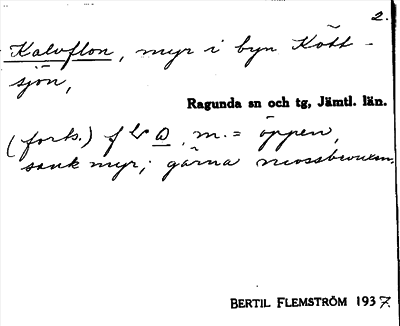 2.
Kalvflon, myr i byn Kött-
sjön,
Ragunda sn och tg, Jämtl. län.
(forts.) f m. = öppen,
sank myr; gärna mossbevuxen.
BERTIL FLEMSTRÖM 1937.